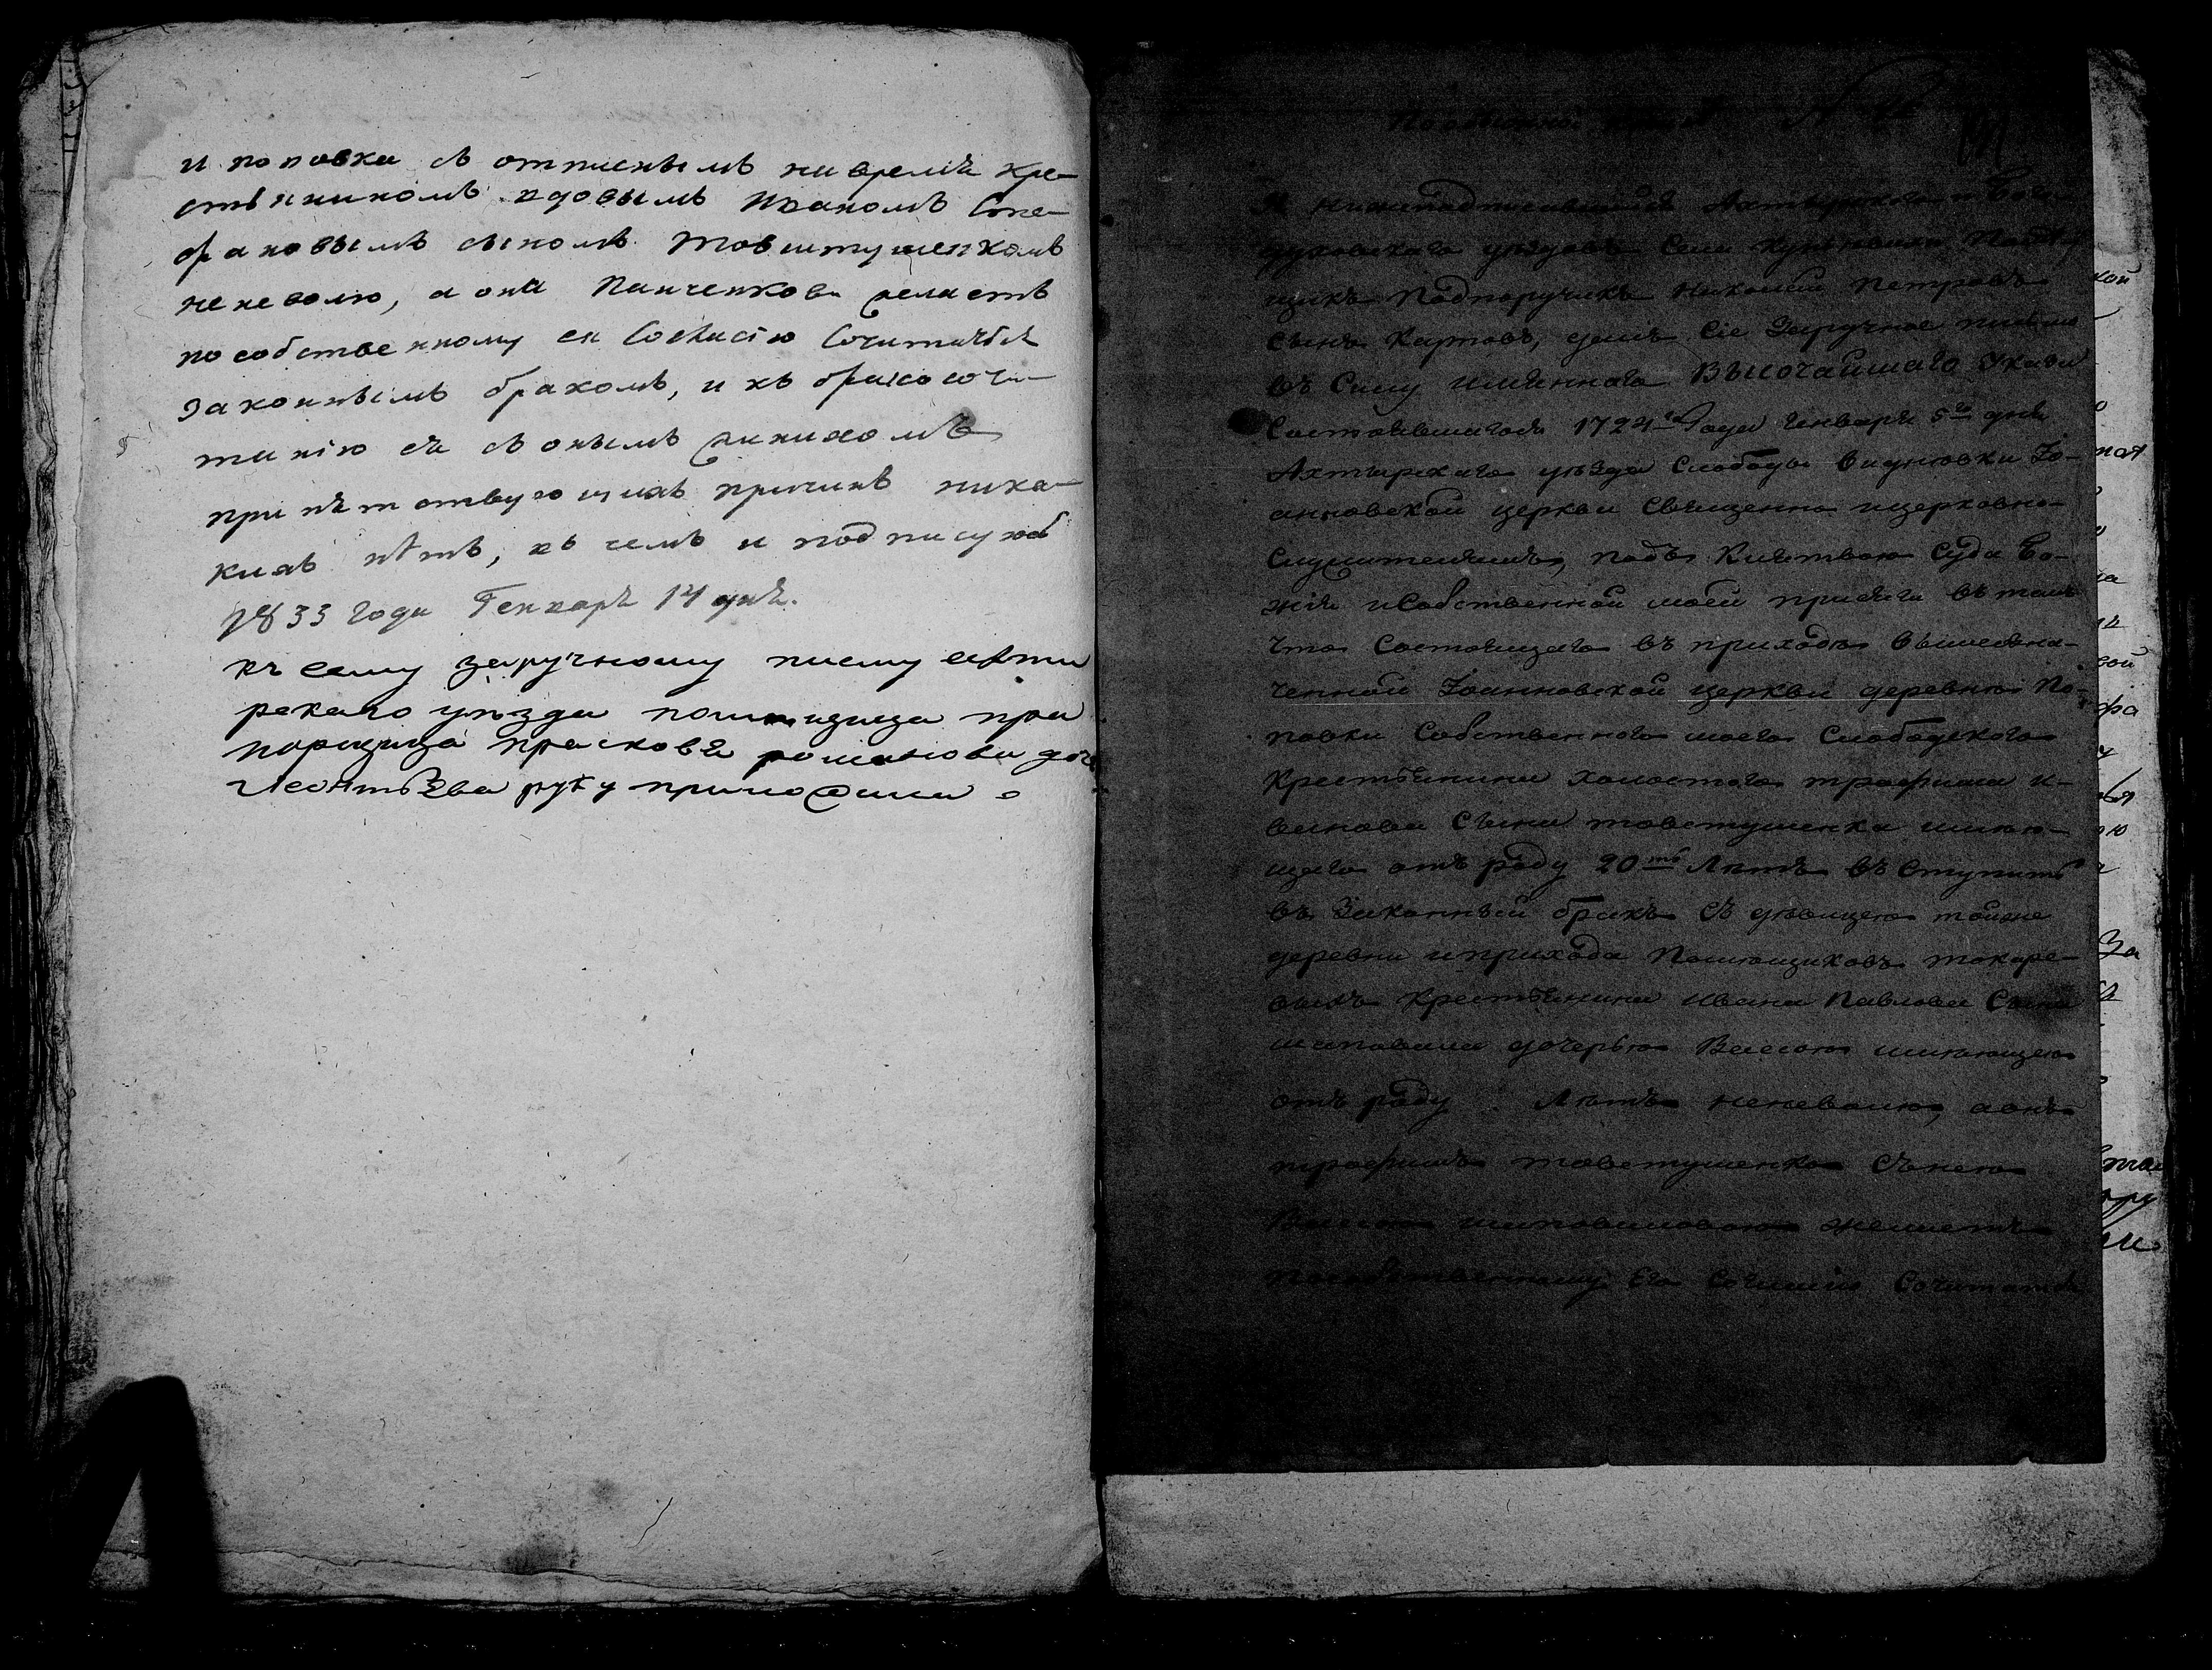 и поповки съ отписнымъ на время Кре-
стьяниномъ вдовымъ Иваномъ Сте-
фановымъ сыномъ Товштушенкомъ
неневолю, а она Панченкова желаетъ
пособственному ея Согласію Сочитатся
законнымъ бракомъ, и къ бракосочи-
танію ея съ онымъ женихомъ
препятствующихъ причинъ ника-
кихъ нѣтъ, въ чемъ и подписуюсь
1833 года Генваря 14 дня.
къ сему заручному писму ахти
рскаго уѣзда помещица пра
порщица прасковя романова доч
Леонтьева руку приложила
№
Я нижеподписавшійся Ахтырского и Бого-
духовского уездовъ Села Помѣ-
щикъ Подпоручикъ Николай Петровъ
Сынъ Картовъ, далъ Сіе Заручное писмо
въ Силу имяннаго ВЫСОЧАЙШАГО Указа
Состоявшагося 1724го Года Генваря 5го дня
Ахтырскаго уѣзда Слободы Видновки Іо-
анновской церкви Священно ицерковно-
Служителямъ, подъ Клятвою Суда Бо-
жія иСобственной моей присяги въ томъ
Что Состоящаго въ приходѣ вышеозна-
ченной Іоанновской церкви деревни По-
повки Собственного моего Слободского
Крестьянина холостого трофима и-
ванова Сына товстушенка имею-
щаго отъ роду 20ть Лѣтъ въступить
въ Законный бракъ Съ девицею тойже
деревни иприхода Помещиковъ токаре-
выхъ Крестьянина Ивана Павлова Сына
шаповала дочерью Васою имеющею
отъ роду Лѣтъ неневолю, аонъ
трофимъ товстушенко Сънею
Васою шаповаловою желаетъ
пособственному Его Согласію Сочитатся